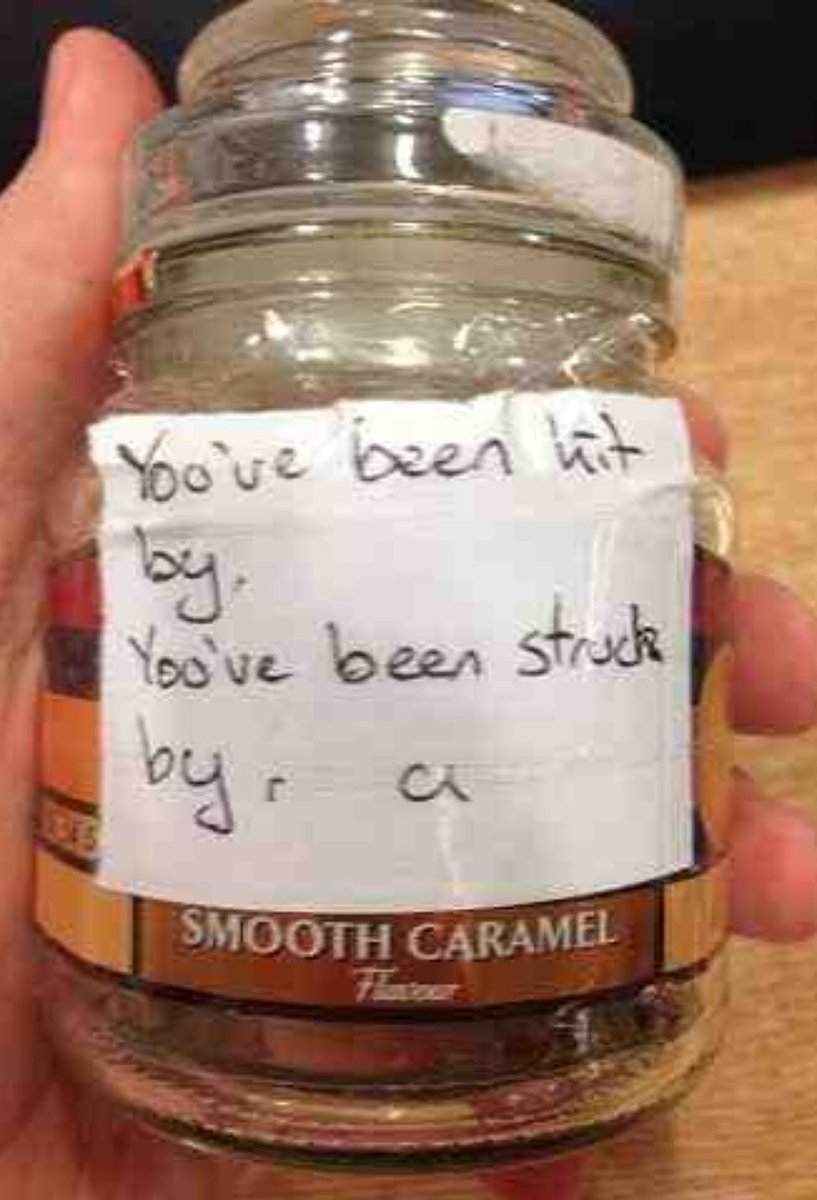 You've been hit
by.
You've been struck
by. a
SMOOTH CARAMEL
Flavour